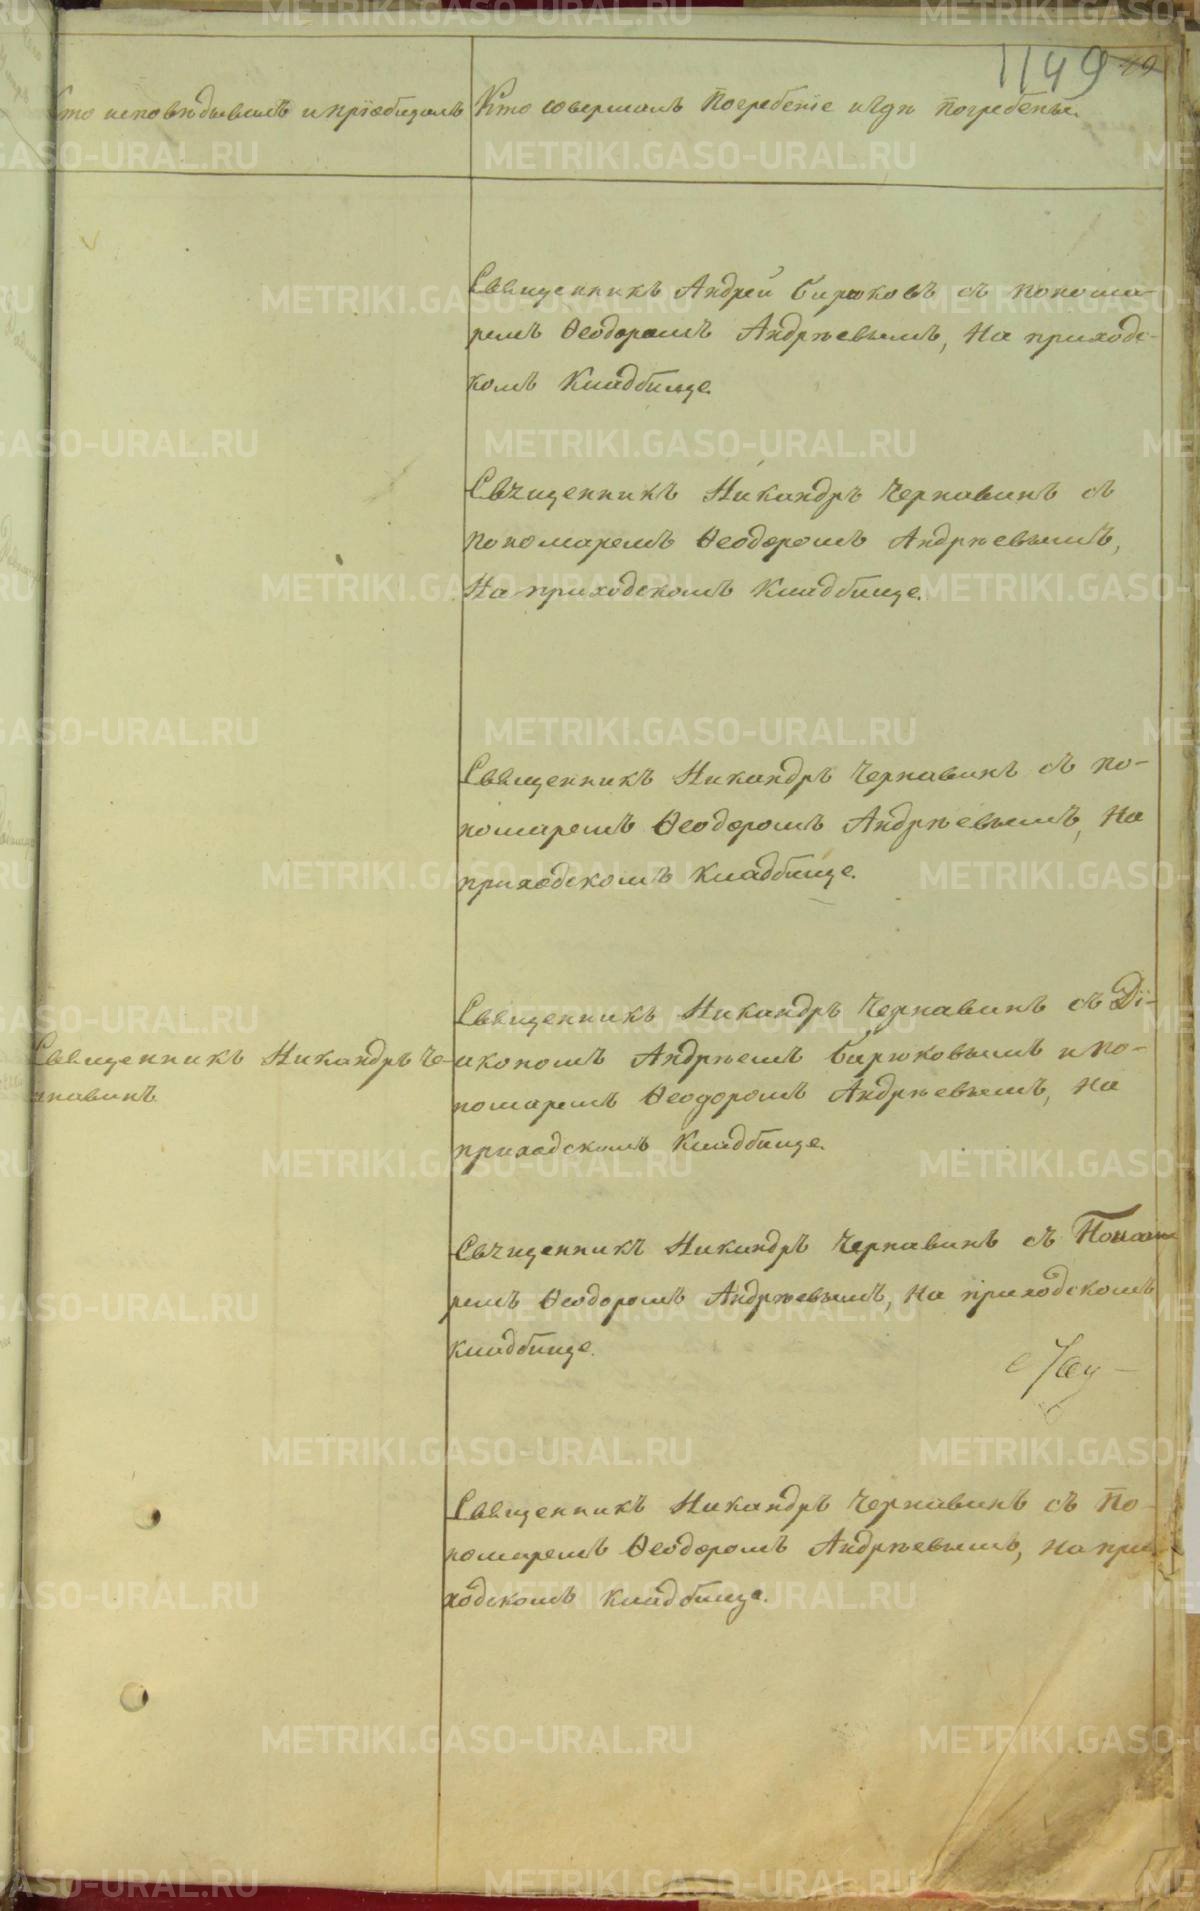 1149
49
Кто исповѣдывалъ и пріобщалъ
Кто совершалъ Погребеніе и гдѣ Погребены.
Священникъ Андрей Бирюковъ съ понома-
ремъ Ѳеодоромъ Андрѣевымъ, На приходс-
комъ Кладбище.
Священникъ Никандръ Чернавинъ съ
пономаремъ Ѳеодоромъ Андрѣевымъ,
На приходскомъ Кладбище.
Священникъ Никандръ Чернавинъ съ по-
номаремъ Ѳеодоромъ Андрѣевымъ, На
приходскомъ Кладбище.
Священникъ Никандръ Че-
рнавинъ
Священникъ Никандръ Чернавинъ съ Дї-
акономъ Андрѣемъ Бирюковымъ и по-
номаремъ Ѳеодоромъ Андрѣевымъ, На
приходскомъ Кладбище.
Священникъ Никандръ Чернавинъ съ Понома
ремъ Ѳеодоромъ Андрѣевымъ, На приходскомъ
Кладбище.
Священникъ Никандръ Чернавинъ съ По-
номаремъ Ѳеодоромъ Андрѣевымъ, На при-
ходскомъ Кладбище.
METRIKI.GASO-URAL.RU